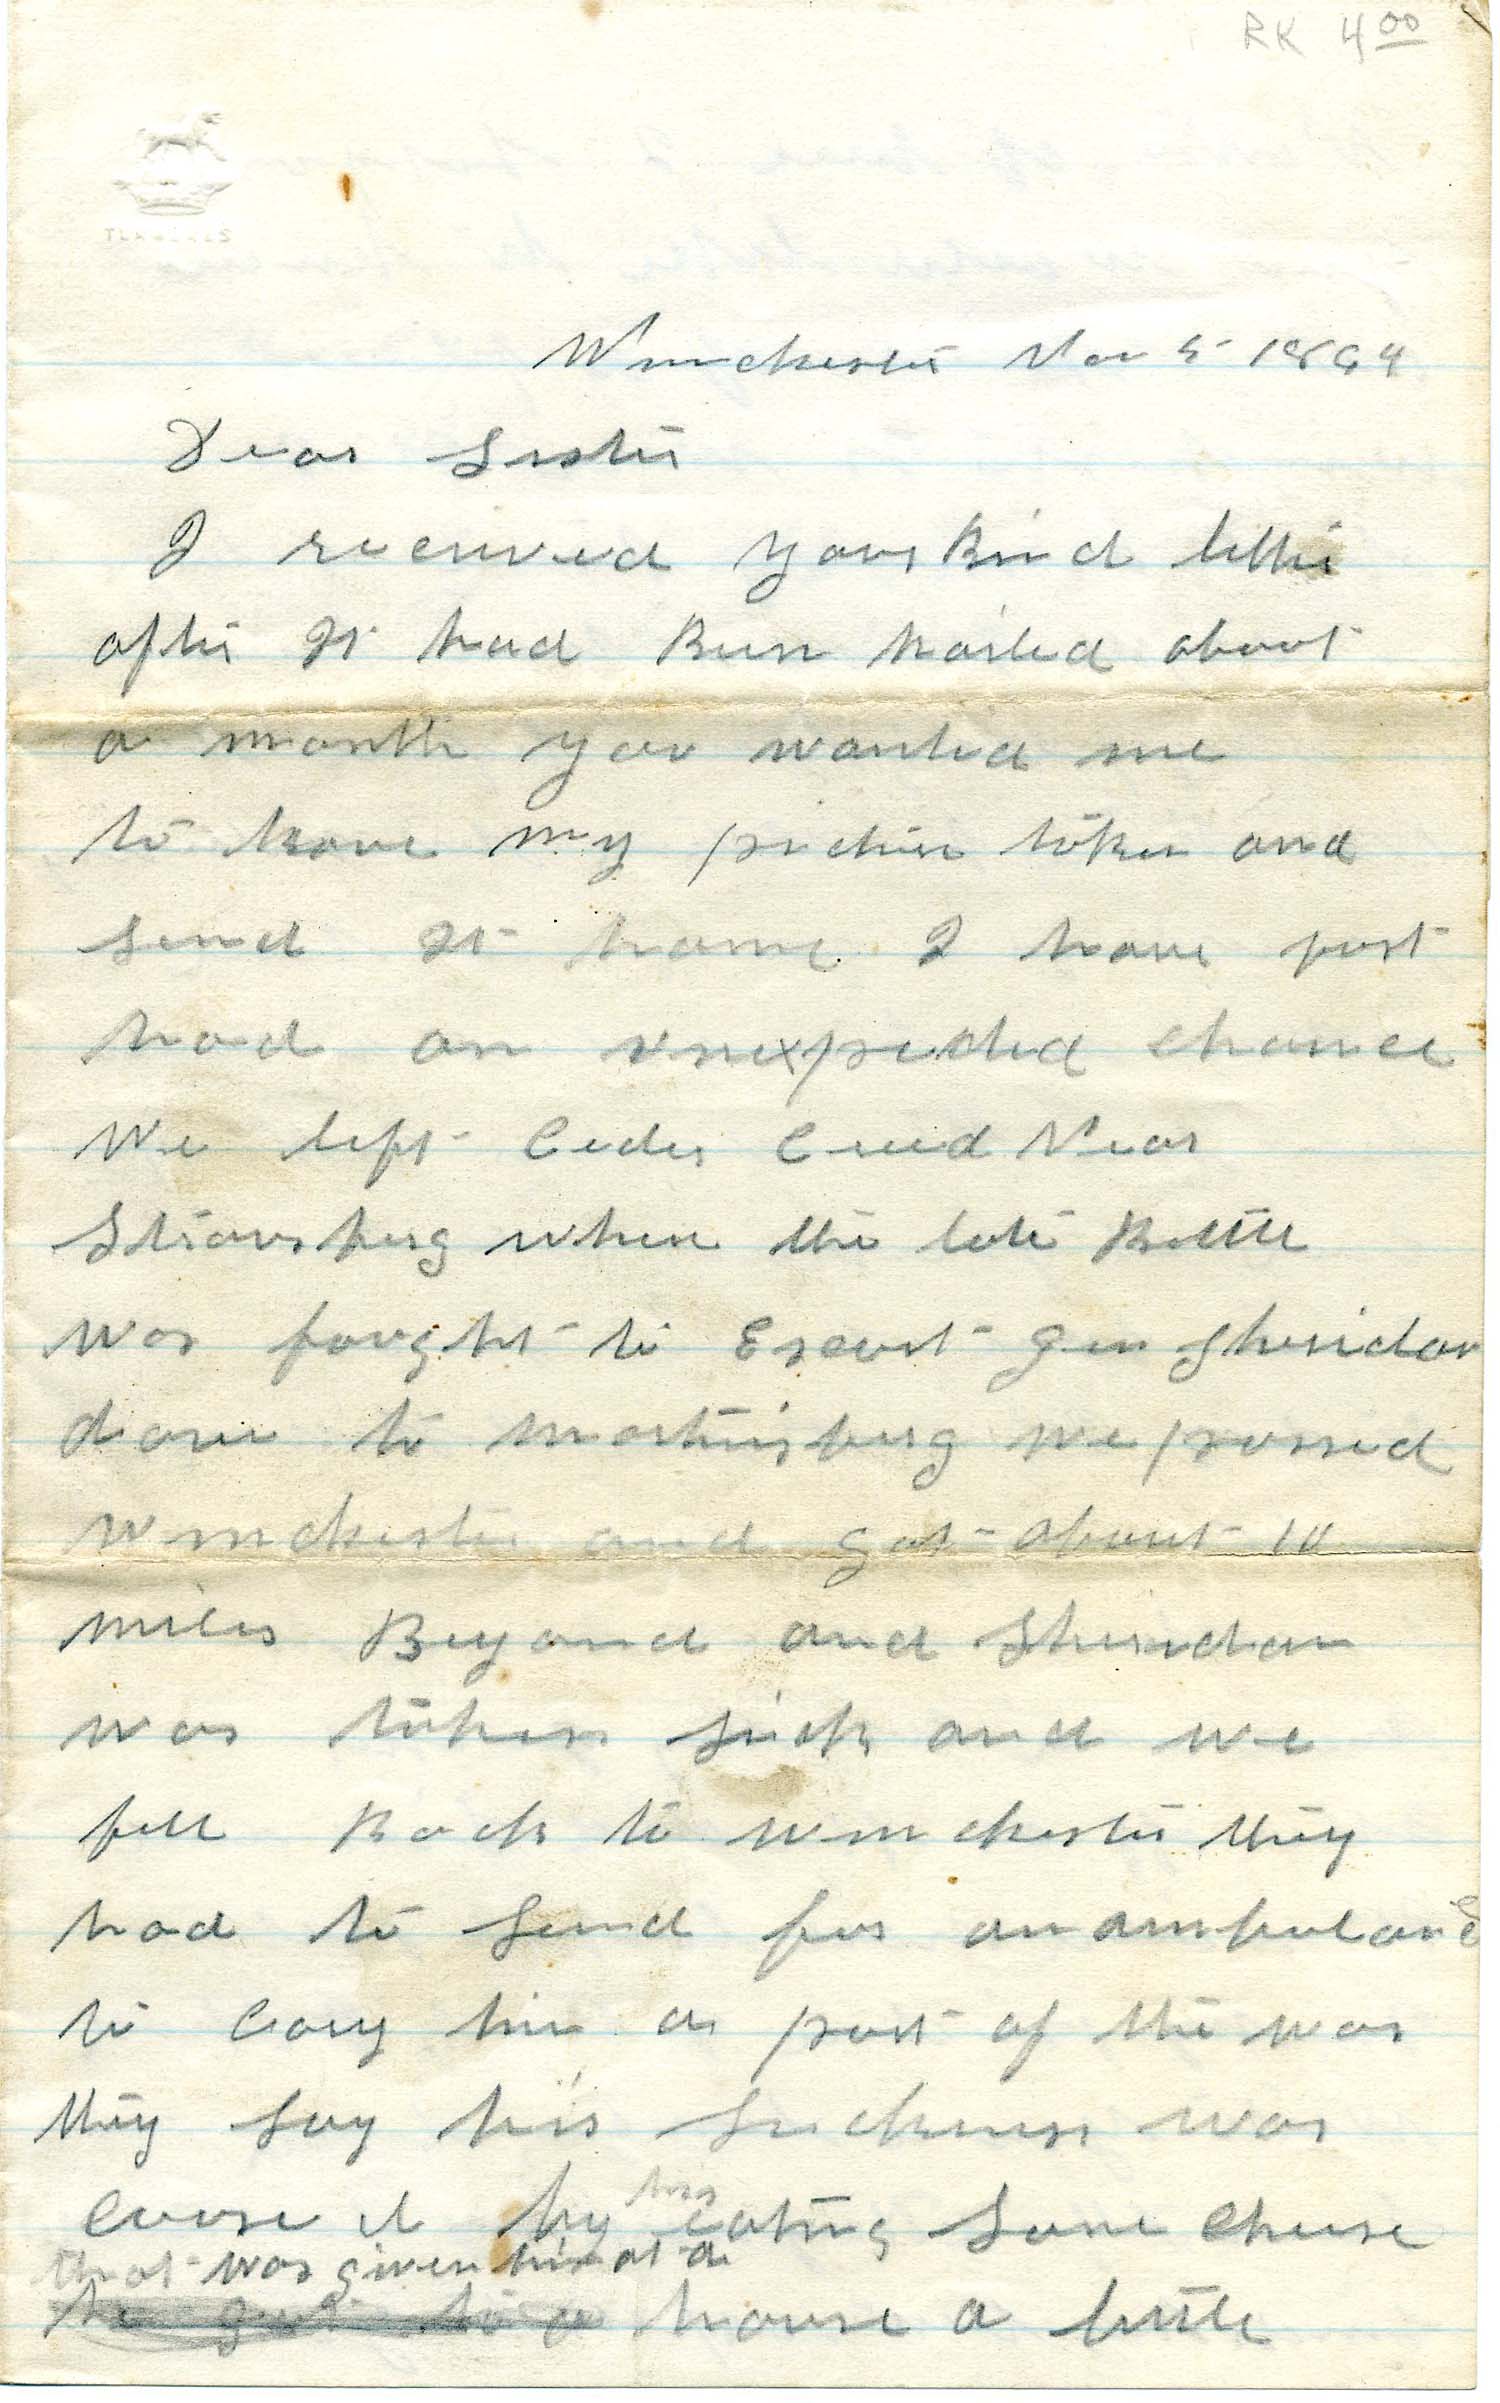 RK 4 00
Winchester Nov 5 1864
Dear Sister
I received your Kind letter
after It had Been mailed about
a month you wanted me
to have my pictur taken and
send It home I have just
had an unexpected chance
We left Ceder Creed Near
Strausburg where the late Battle
was fought to Escort Gen Sheridan
down to Martinsburg we passed
Winchester and got about 10
miles Beyond and Sheridan
was taken sick and we
fell Back to Winchester they
had to send for an ambulance
to Cary him a part of the way
they say his sickness was
cause d by his eating some cheese
that was given him at a
he got to a house a little